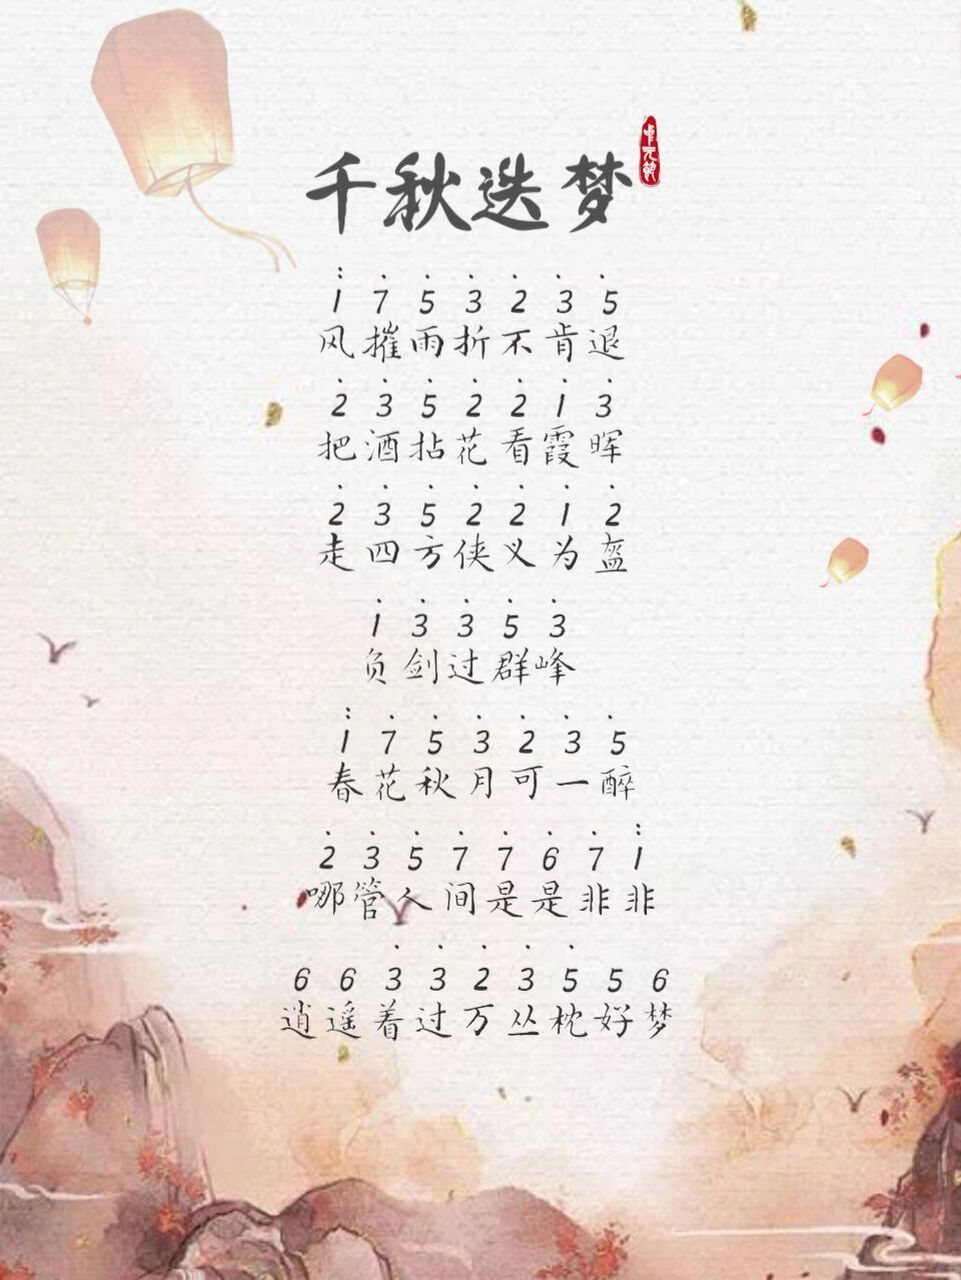 千秋迭梦
1 7 5 3 2 3 5
风摧雨折不肯退
2 3 5 2 2 1 3
把酒拈花看霞晖
2 3 5 2 2 1 2
走四方侠义为盔
1 3 3 5 3
负剑过群峰
1 7 5 3 2 3 5
春花秋月可一醉
2 3 5 7 7 6 7 1
哪管人间是是非非
6 6 3 3 2 3 5 5 6
逍遥着过万丛枕好梦